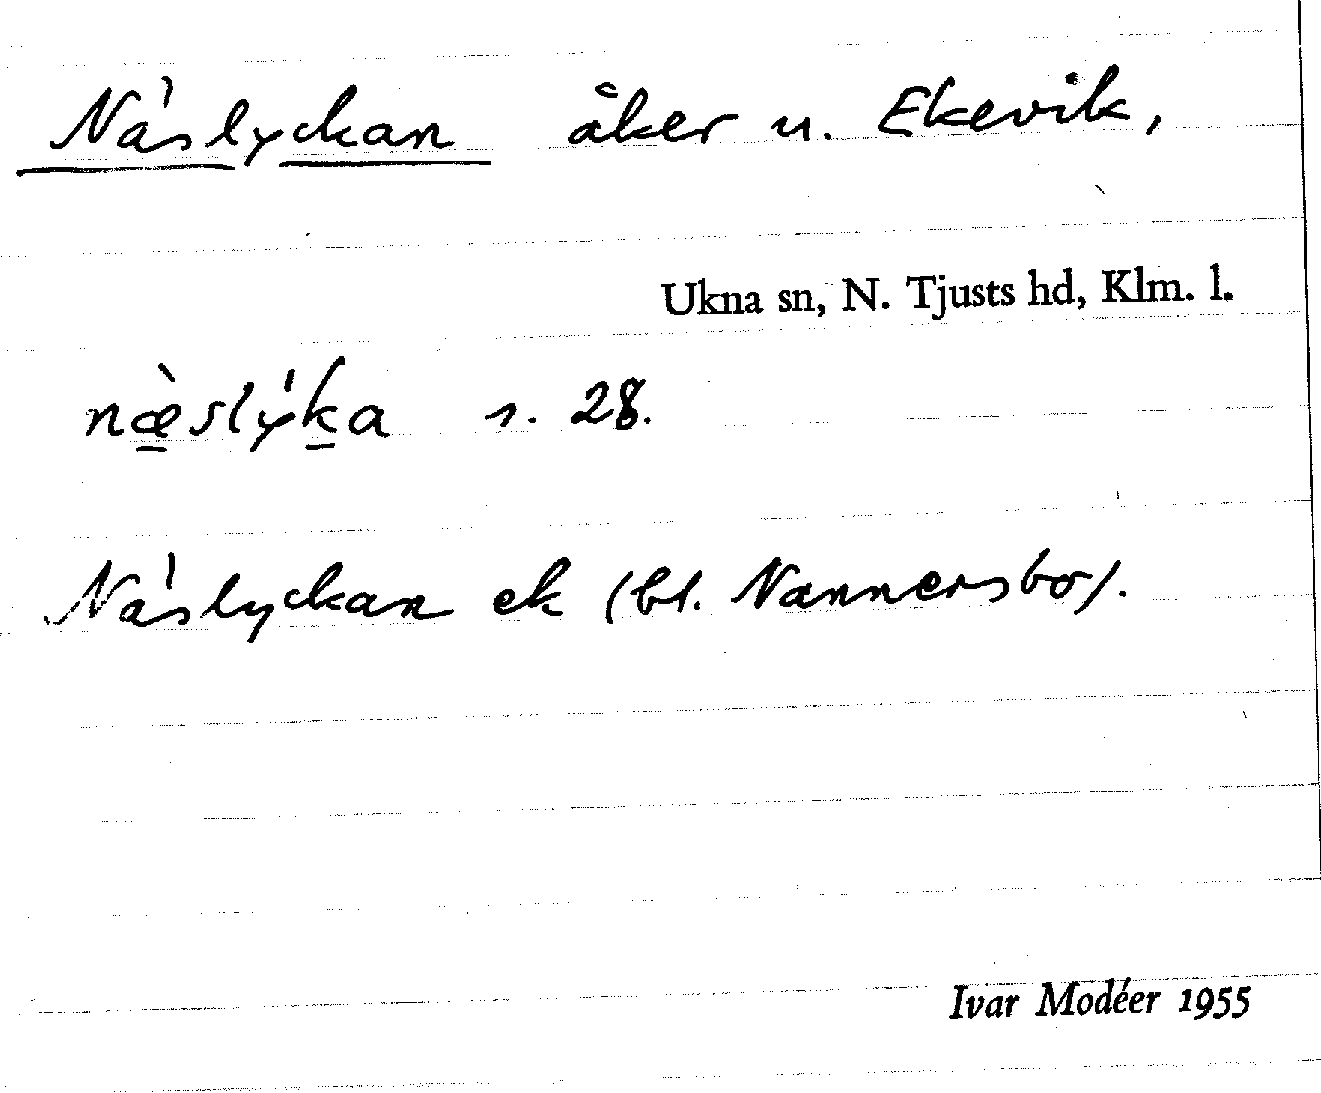 Näslyckan åker u. Ekevik,
Ukna sn, N. Tjusts hd, Klm. l.
næ̀slýka s. 28.
Näslyckan ek (bl. Nannersbo).
Ivar Modéer 1955